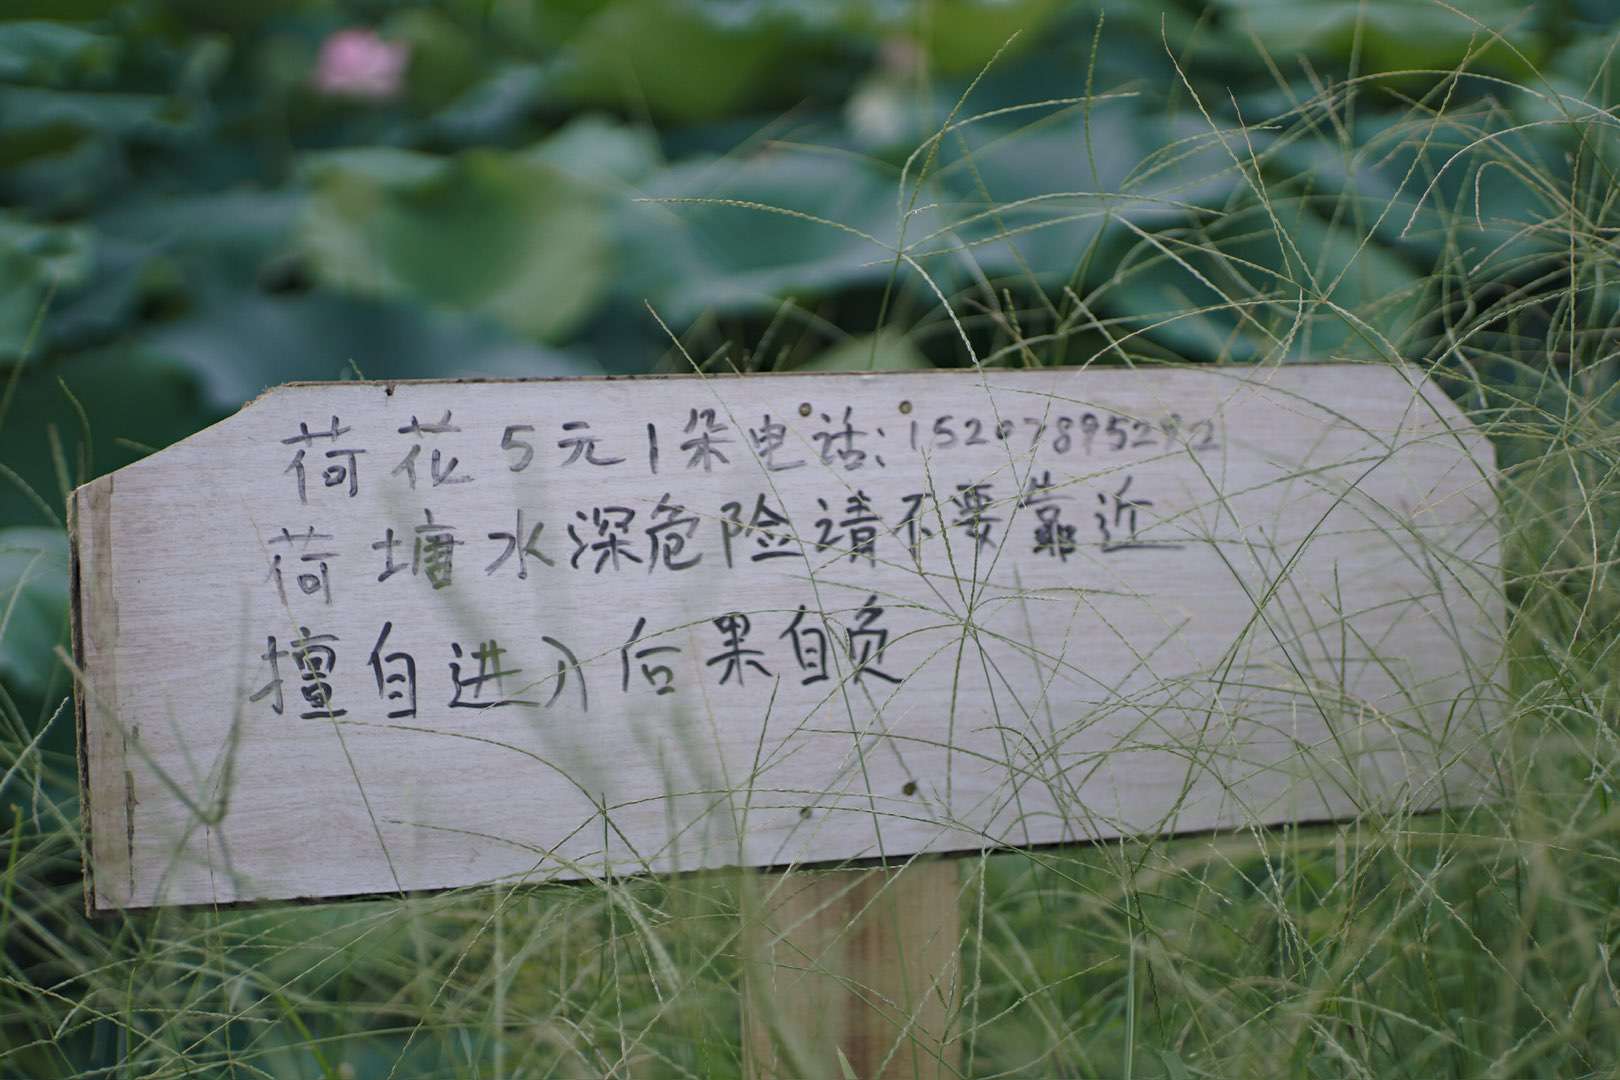 荷花5元1朵电话:15207895292
荷塘水深危险请不要靠近
擅自进入后果自负